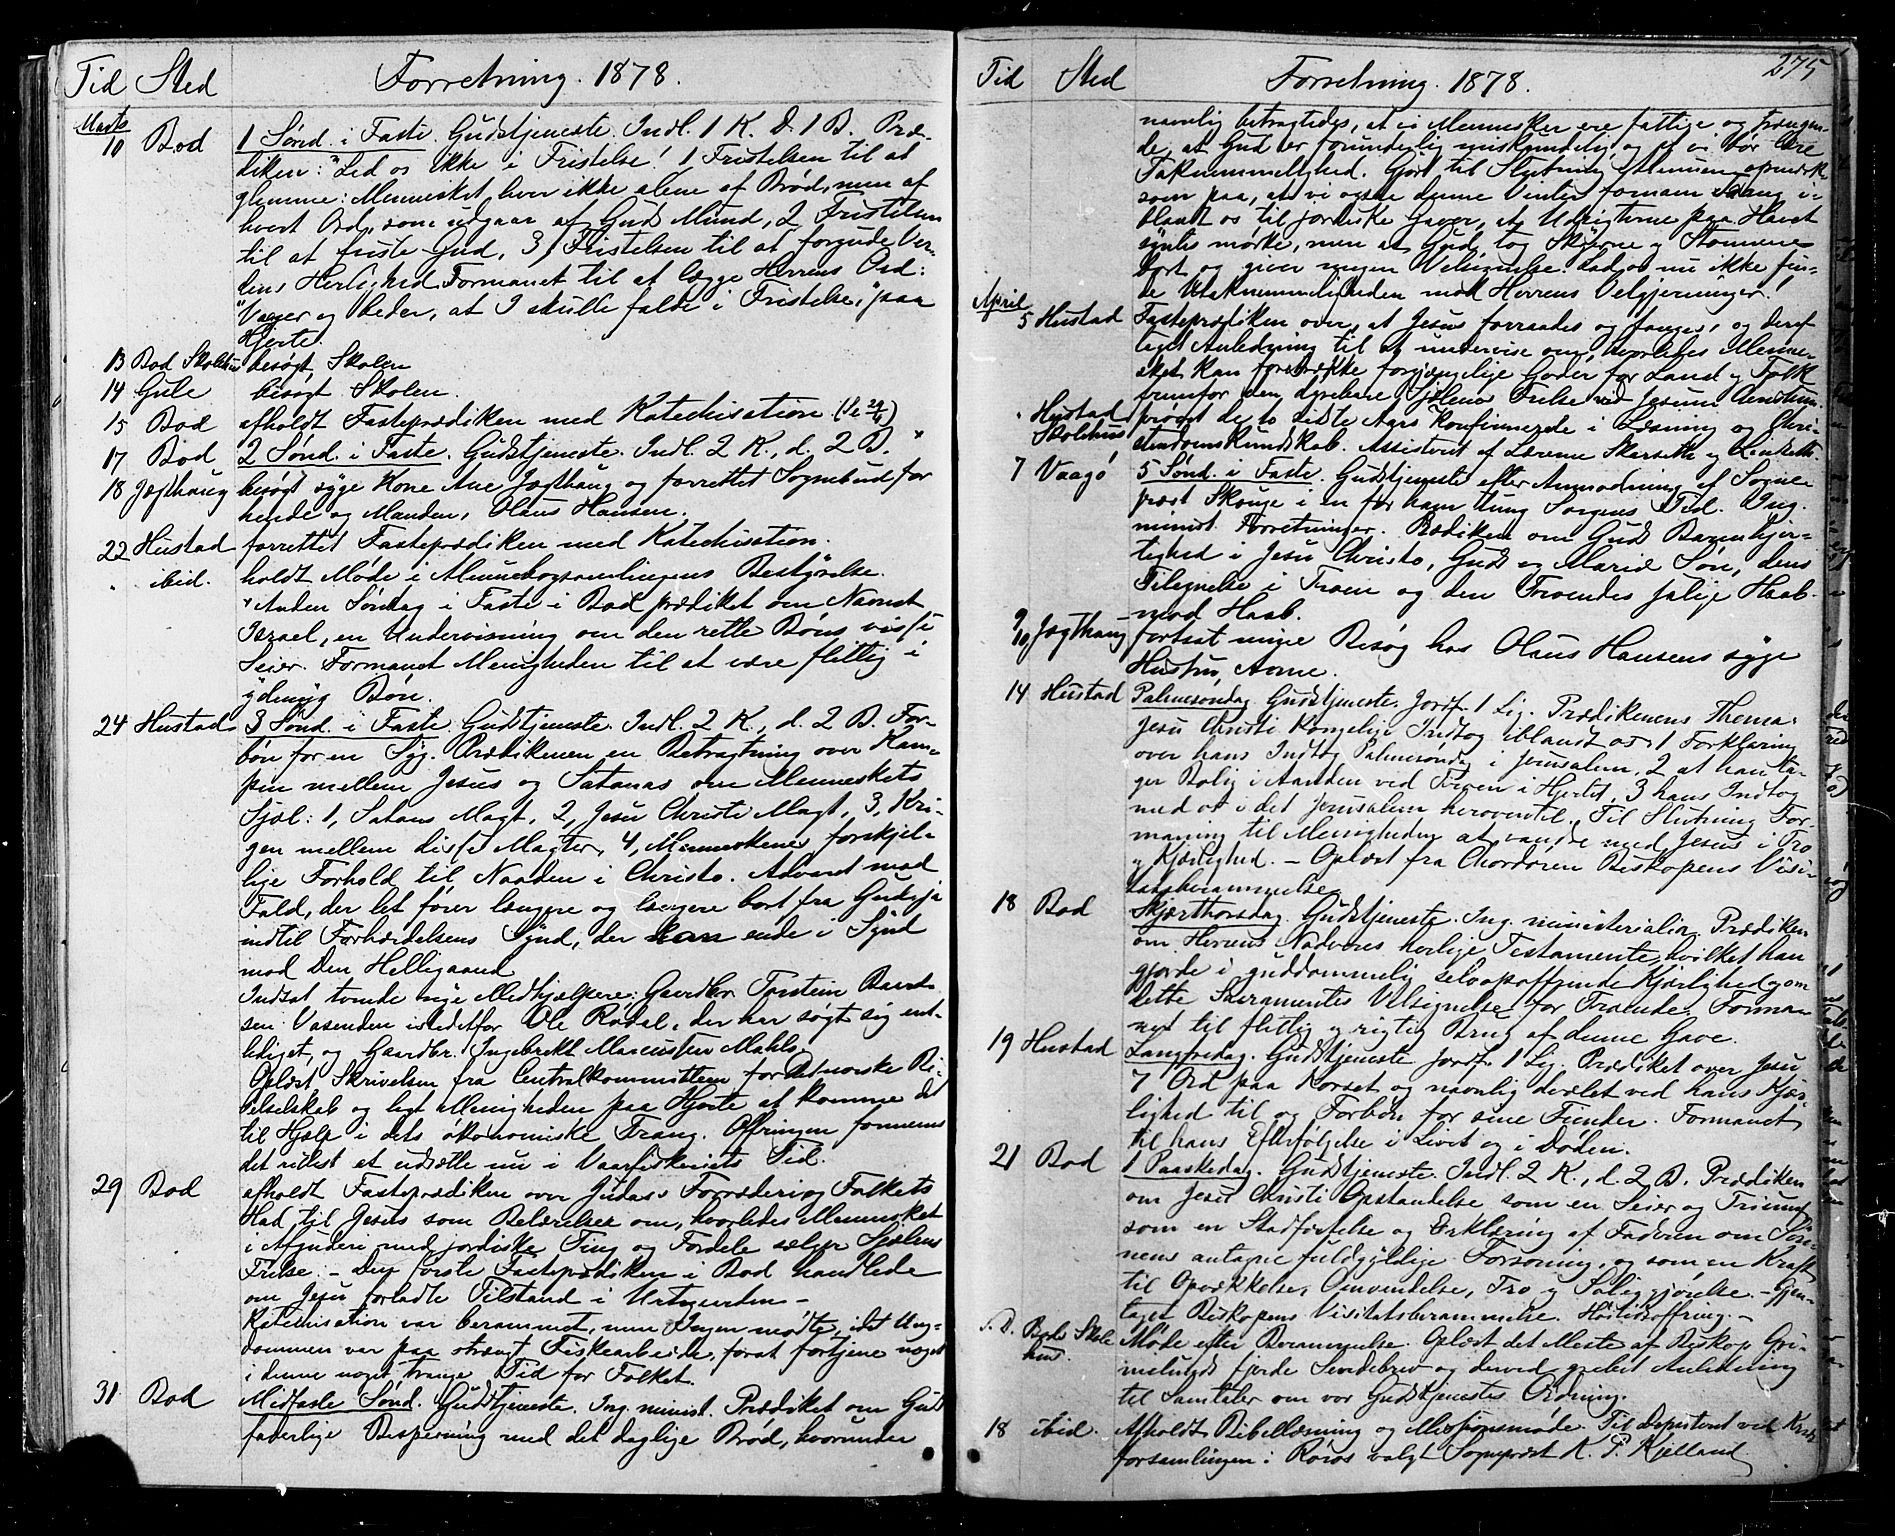 Tid Sted Forretning. 1878.
Marts
10 Bod 1 Sønd. i Faste. Gudstjeneste. Indl. 1 K. D. 1 B. Præ-
diken: "Led os ikke i Fristelse! 1, Fristelsen til at
glemme: Mennesket lever ikke alene af Brød, men af
hvert Ord, som udgaar af Guds Mund, 2, Fristelsen
til at friste Gud, 3, Fristelsen til at forgude Ver-
dens Herlighed. Formanet til at lægge Herrens Ord:
"Vaager og beder, at I skulle falde i Fristelse," paa
Hjerte.
13 Bod Skolehus besøgt Skolen
14 Gule besøgt Skolen.
15 Bod afholdt Fasteprædiken med Katechisation
17 Bod 2 Sønd. i Faste. Gudstjeneste. Indl. 2 K., d. 2 B. *
18 Jægthaug besøgt syge Kone Ane Jægthaug og forrettet Sognebud for
hende og Manden, Olaus Hansen.
22 Hustad forrettet Fasteprædiken med Katechisation.
" ibid. holdt Møde i Almuebogsamlingens Bestyrelse.
* Anden Søndag i Faste i Bod prædiket om Navnet
Israel, en Undervisning om den rette Bøns visse
Seier. Formanet Menigheden til at være flittig i
ydmyg Bøn.
24 Hustad 3 Sønd. i Faste. Gudstjeneste. Indl. 2 K., d. 2 B. For-
bøn for en Syg. Prædikenen en Betragtning over Kam-
pen mellem Jesus og Satanas om Menneskets
Sjæl: 1, Satans Magt, 2, Jesu Christi Magt, 3, Kri-
gen mellem disse Magter, 4, Menneskenes forskjel-
lige Forhold til Naaden i Christo. Advaret mod
Fald, der let fører længere og længere bort fra Gud
indtil Forhærdelsens Synd, der kan ende i Synd
mod Den Helligaand
Indsat tvende nye Medhjælpere: Gaardbr. Torstein
sen Vasenden istedetfor Ole Rødal, der har søgt sig ent-
lediget, og Gaardbr. Ingebrikt Marcussen Male.
Oplæst Skrivelsen fra Centralkommitteen for Det norske Bi-
belselskab og lagt Menigheden paa Hjerte at komme det
til Hjælp i dets økonomiske Trang. Ofringen fandtes
det rettest at udsætte nu i Vaarfiskeriets Tid.
29 Bod afholdt Fasteprædiken over Judas's Forræderi og Folkets
Had til Jesus som Belærelser om, hvorledes Mennesket
i Afguderi med jordiske Ting og Fordele sælger Sjælens
Frelse. – Den første Fasteprædiken i Bod handlede
om Jesu forladte Tilstand i Urtegaarden –
Katechisation var berammet, men Ingen mødte, idet Ung-
dommen var paa strængt Fiskearbeide, forat fortjene noget
i denne noget trange Tid for Folket.
31. Bod Midfaste Sønd. Gudstjeneste. Ing. minist. Prædiket om Guds
faderlige Bespisning med det daglige Brød, hvorunder
Tid Sted Forretning. 1878. 275
navnlig betragtedes, at vi Mennesker ere fattige og trængen-
de, at Gud er forunderlig miskundelig, og at vi bør lære
Taknemmelighed. Gjort til Slutning Menigheden opmærk-
som paa, at vi ogsaa denne Vinter fornam Trang i-
blandt os til jordiske Gaver, at Udsigterne paa Havet
syntes mørke, men at Gud tog Skyerne og Stormene
bort og giver megen Velsignelse. Lad os nu ikke fin-
de Utaknemmeligheden mod Herrens Velgjerninger!
April
5 Hustad Fasteprædiken over, at Jesus forraades og fanges, og deraf
taget Anledning til at undervise om, hvorledes Menne-
sket kan foretrække forgjængelige Goder for Land og Folk
fremfor den dyrebare Sjælenes Frelse ved Jesum Christum.
" Hustad Skolehus prøvet de to sidste Aars Konfirmerede i Læsning og Chri-
stendomskundskab. Assisteret af Lærerne Skarseth og Linseth.
7 Vaagø 5 Sønd. i Faste. Gudstjeneste efter Anmodning af Sogne-
præst Skouge i en for ham tung Sorgens Tid. Ing.
minist. Forretninger. Prædiken om Guds Barmhjer-
tighed i Jesu Christo, Guds og Mariæ Søn, dens
Tilegnelse i Troen og den Troendes salige Haab
mod Haab.
9/10 Jægthaug fortsat mine Besøg hos Olaus Hansens syge
Hustru, Anne.
14 Hustad Palmesøndag Gudstjeneste. Jordf. 1 Lig. Prædikenens Thema:
Jesu Christi Kongelige Indtog iblandt os: 1 Forklaring
over hans Indtog Palmesøndag i Jerusalem. 2 at han ta-
ger Bolig i Aanden ved Troen i Hjertet, 3 hans Indtog
med os i det Jerusalem heroventil. Til Slutning For-
maning til Menigheden at vandre med Jesus i Tro
og Kjærlighed. – Oplæst fra Chordøren Biskopens Visi-
tatsberammelse
18 Bod Skjærthorsdag. Gudstjeneste. Ing. ministerialia. Prædiken
om Herrens Nadveres herlige Testamente, hvilket han
gjorde i guddommelig selvopoffrende Kjærlighed, og om
dette Sacramentes Velsignelse for Troende. Forma-
net til flittig og rigtig Brug af denne Gave.
19 Hustad Langfredag. Gudstjeneste. Jordf. 1 Lig. Prædiket over Jesu
7 Ord paa Korset og navnlig dvælet ved hans Kjær-
lighed til og Forbøn for sine Fiender. Formanet
til hans Efterfølgelse i Livet og i Døden.
21 Bod 1 Paaskedag. Gudstjeneste. Indl. 2 K., d. 2 B. Prædiken
om Jesu Christi Opstandelse som en Seier og Triumf,
som en Stadfæstelse og Erklæring af Faderen om Søn-
nens antagne fuldgyldige Forsoning, og som en Kraft
til Opvækkelse, Omvendelse, Tro og Saliggjørelse. – Gjen-
taget Biskopens Visitatsberammelse. Høitidsoffring –
S. D. Bods Skole hus. Møde efter Berammelse. Oplæst det Meste af Biskop Gri-
melunds fjerde Sendebrev og derved grebet Anledning
til Samtaler om vor Gudstjenestes Ordning.
18 ibid. Afholdt Bibellæsning og Missionsmøde. Til Deputeret ved Kreds-
forsamlingen i Røros valgt Sognepræst K. P. Kjelland